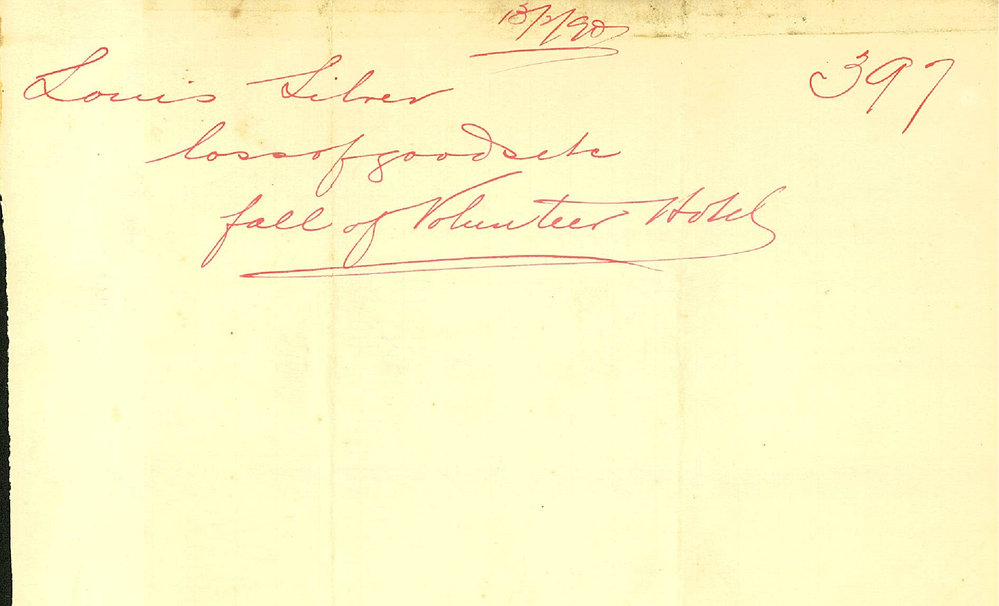 397
Louis Silver
loss of goods etc
fall of Volunteer Hotel